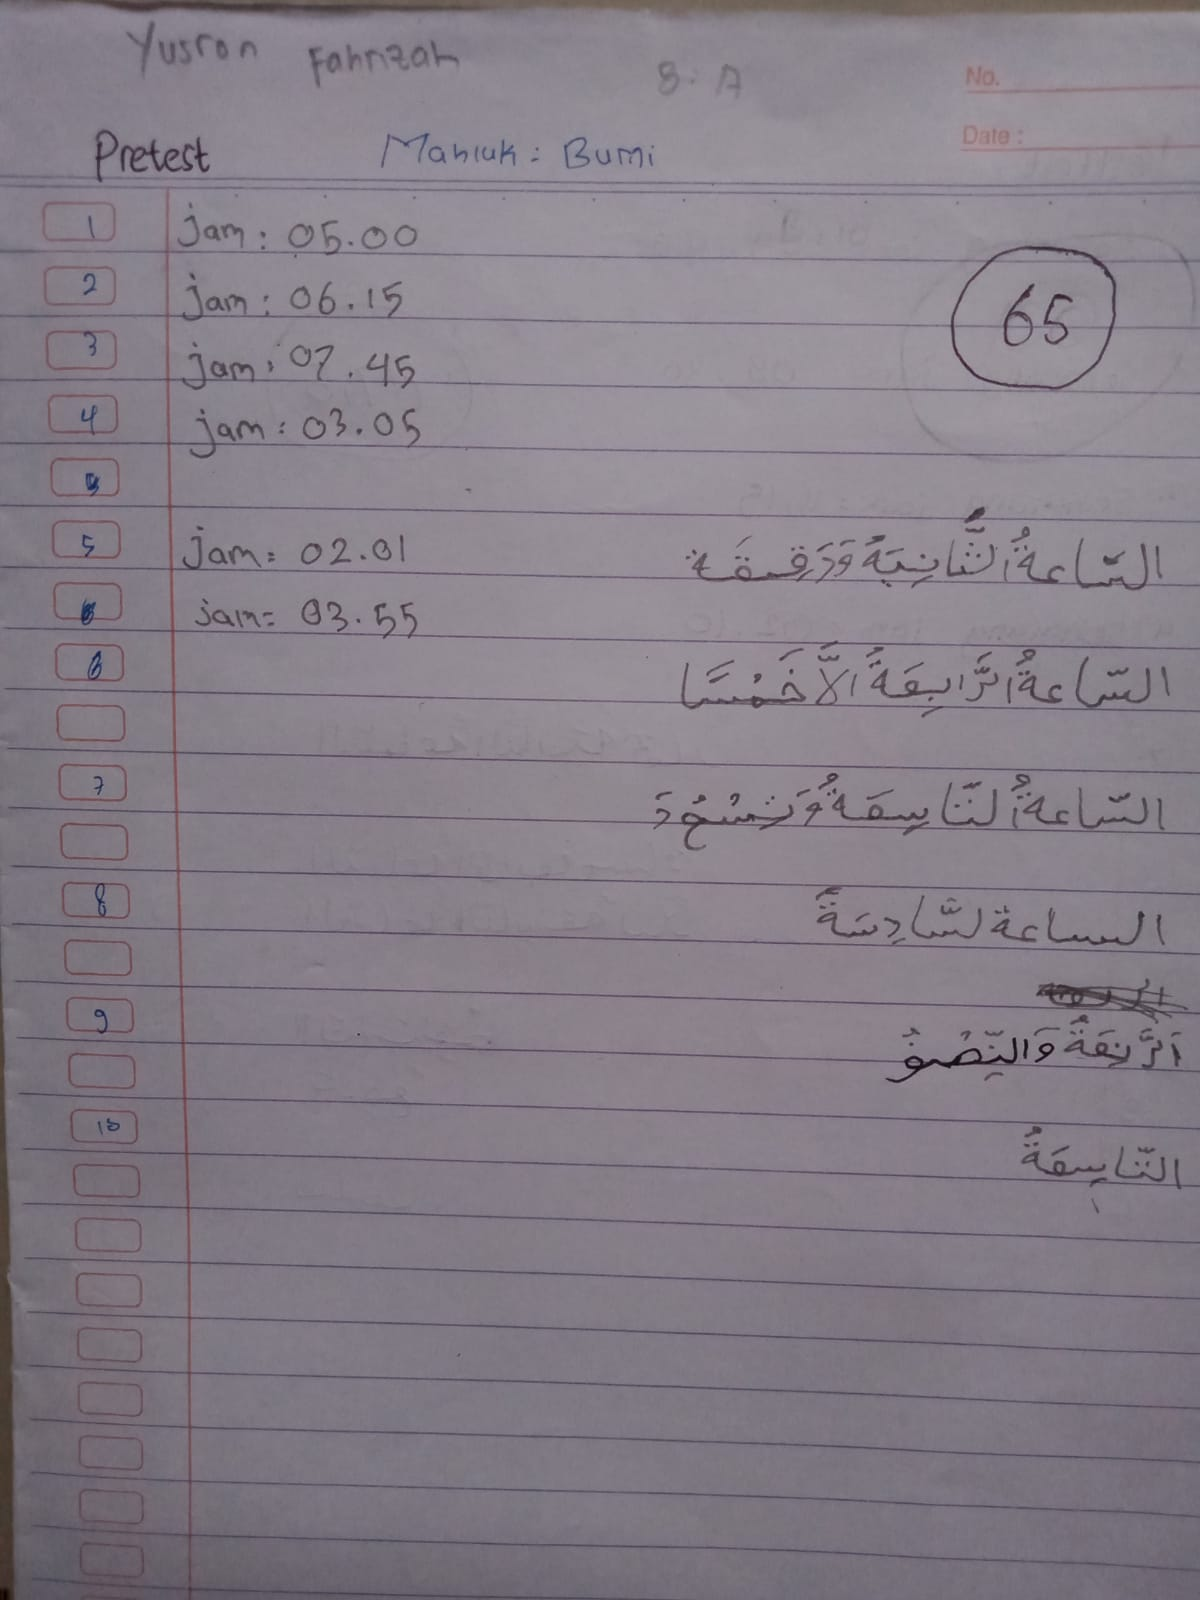 Yusron Fahrizah 8.A
No.
Date :
Pretest Mahluk : Bumi
1 jam : 05.00
65
2 jam : 06.15
3 jam : 07.45
4 jam : 03.05
5 jam = 02.01 السّاعةُ الثَّانِيَةُ وَدَقِيقَة
jam = 03.55
6 السّاعةُ الرَّابِعَةُ اِلاَّ خَمْسًا
7 السّاعةُ التَّاسِعَةُ
8 الساعة لسَّادِسَةُ
9 اَلرَّبِعَةُ وَالنِّصْفُ
10 التَّاسِعَةُ